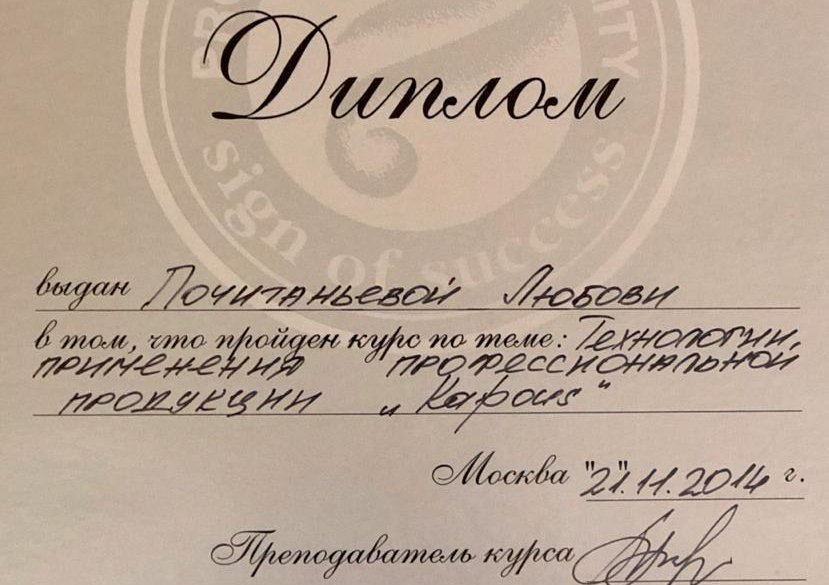 Диплом
sign of success
выдан Почитаньевой Любови
в том, что пройден курс по теме: Технологии
применения профессиональной
продукции „Kapous"
Москва "21".11.2014 г.
Преподаватель курса